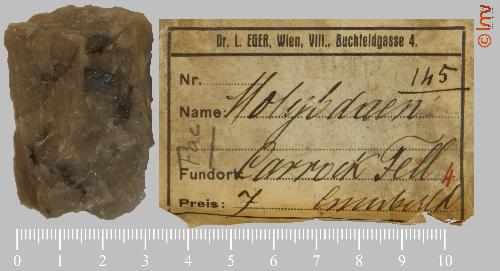 © lmv
Dr. L. EGER, Wien, VIII., Buchfeldgasse 4.
Nr. 145
Name: Molybdaen
Fundort: Carrock Fell 4
Preis: 7
0 1 2 3 4 5 6 7 8 9 10